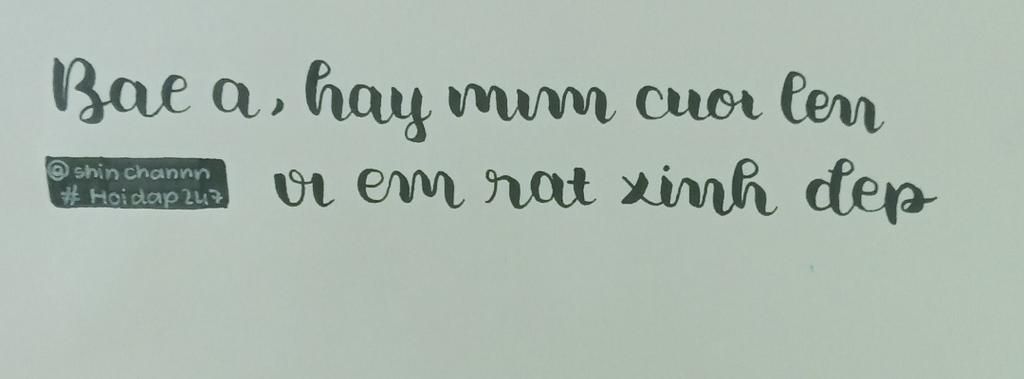 Bae a, hay mım cuoı len
@shin channn
# Hoidap247
vı em rat xinh dep